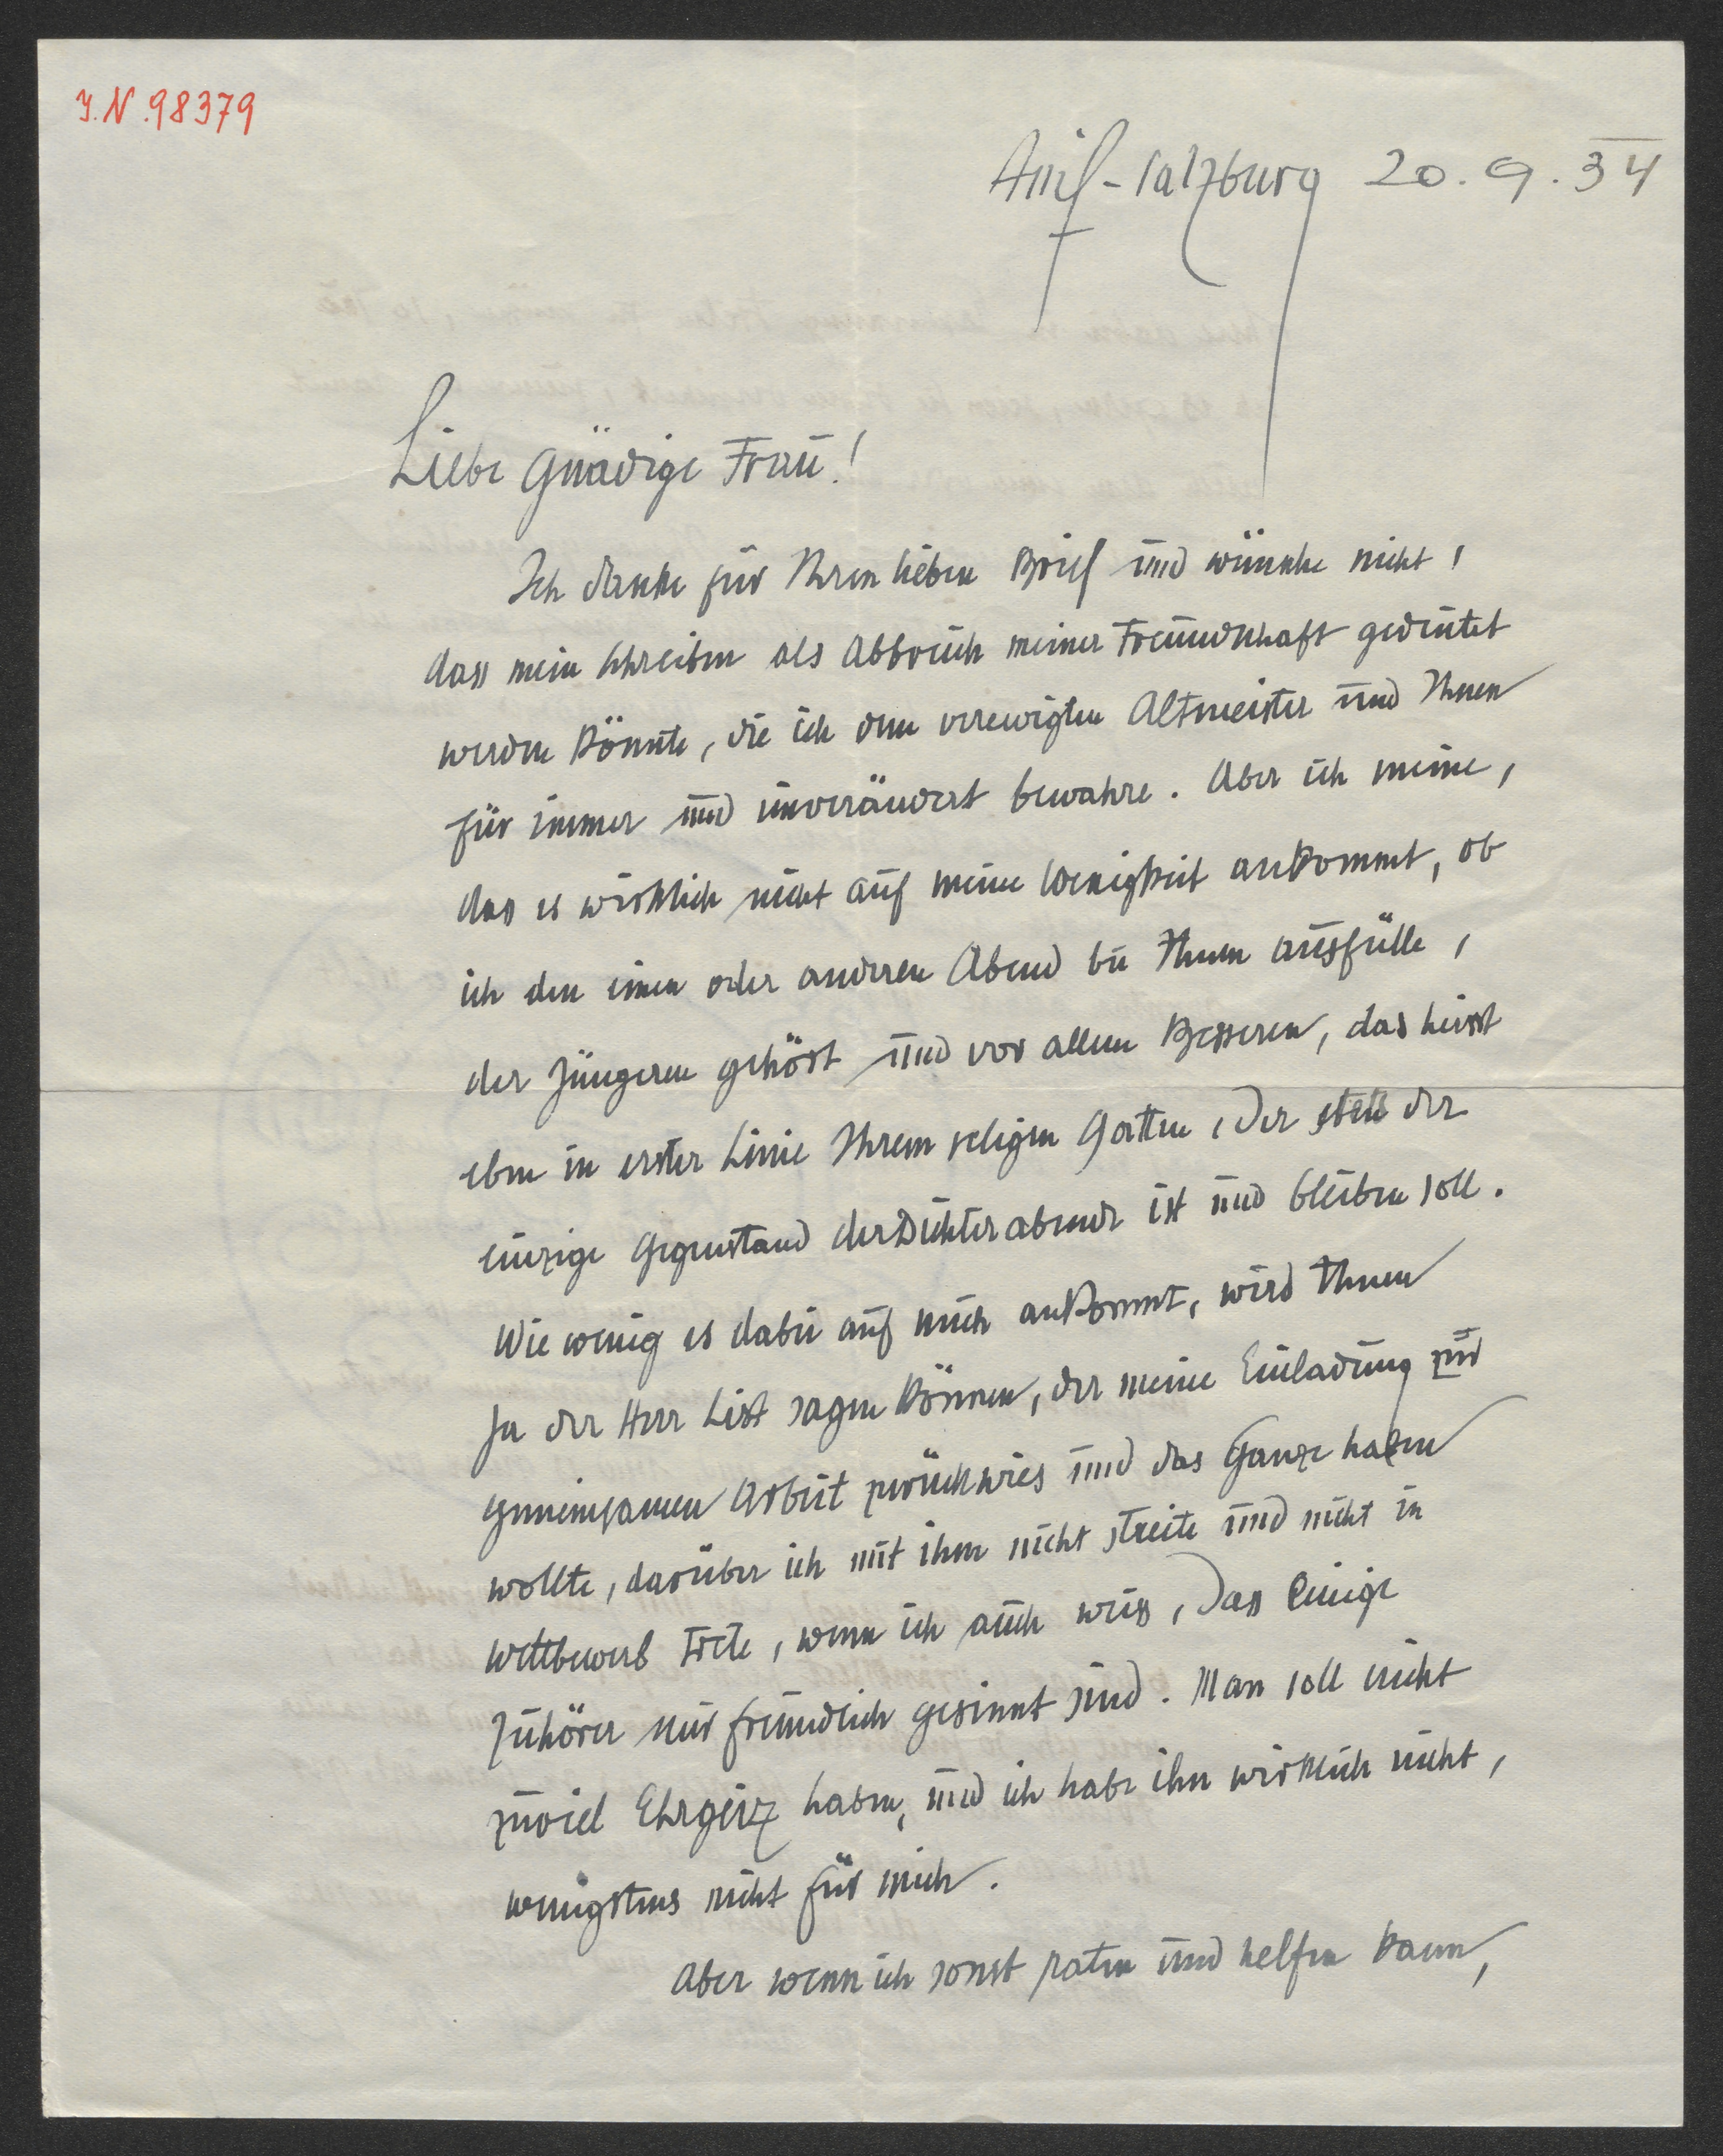 J.N. 98379
Anif-Salzburg 20.9.34
Liebe Gnädige Frau!
Ich danke für Ihren lieben Brief und wünsche nicht,
dass mein Schreiben als Abbruch meiner Freundschaft gedeutet
werden könnte, die ich dem verewigten Altmeister und Ihnen
für immer und unverändert bewahre. Aber ich meine,
dass es wirklich nicht auf meine Wenigkeit ankommt, ob
ich den einen oder anderen Abend bei Ihnen ausfülle,
der Jüngeren gehört und vor allem Besseren, das heisst
eben in erster Linie Ihrem seligen Gatten, der stets der
einzige Gegenstand der Dichterabende ist und bleiben soll.
Wie wenig es dabei auf mich ankommt, wird Ihnen
ja der Herr List sagen können, der meine Einladung zur
gemeinsamen Arbeit zurückwies und das Ganze haben
wollte, darüber ich mit ihm nicht streite und nicht in
Wettbewerb trete, wenn ich auch weiss, dass Einige
Zuhörer mir freundlich gesinnt sind. Man soll nicht
zuviel Ehrgeiz haben, und ich habe ihn wirklich nicht,
wenigstens nicht für mich.
Aber wenn ich sonst raten und helfen kann,